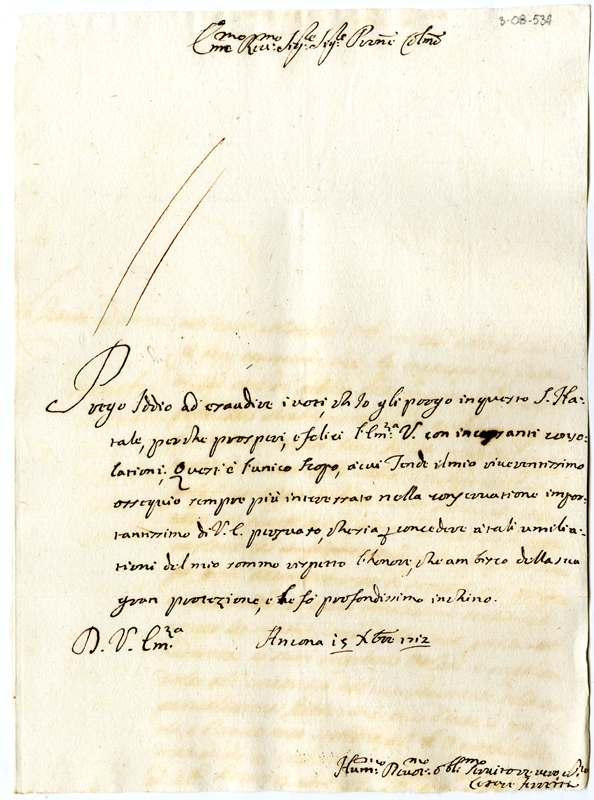 3-08-534
Em̃o e Rev: Sig: Sig: Prõne Colmõ
Prego Iddio ad esaudire i voti, ch'Io gli porgo in questo S. Na-
tale, perche prosperi, e felici l'Em:za V. con incessanti conso-
lationi; Questi è l'unico scopo, a cui Tende il mio riverentissimo
ossequio sempre più interessato nella conservatione impor-
tantissima di V. E. persuaso, che sia p concedere a tali umilia-
tioni del mio sommo rispetto l'honore, che ambisco della sua
gran protezione, e le fò profondissimo inchino.
D. V. Em:za Ancona 15 Xbre 1712
Hum:mo Devot:mo Obbl:mo Servitore vero
Cesare